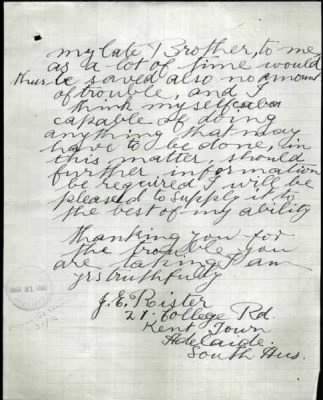 my late Brother, to me
as a lot of time would
thus be saved also no amount
of trouble, and I
think myself
capable of doing
anything that may
have to be done, in
this matter, should
further information
be required I will be
pleased to supply it to
the best of my ability
thanking you for
the trouble you
are taking I am
yrs truthfully
J. E. Rister
21. College Rd.
Kent Town
Adelaide.
South Aus.